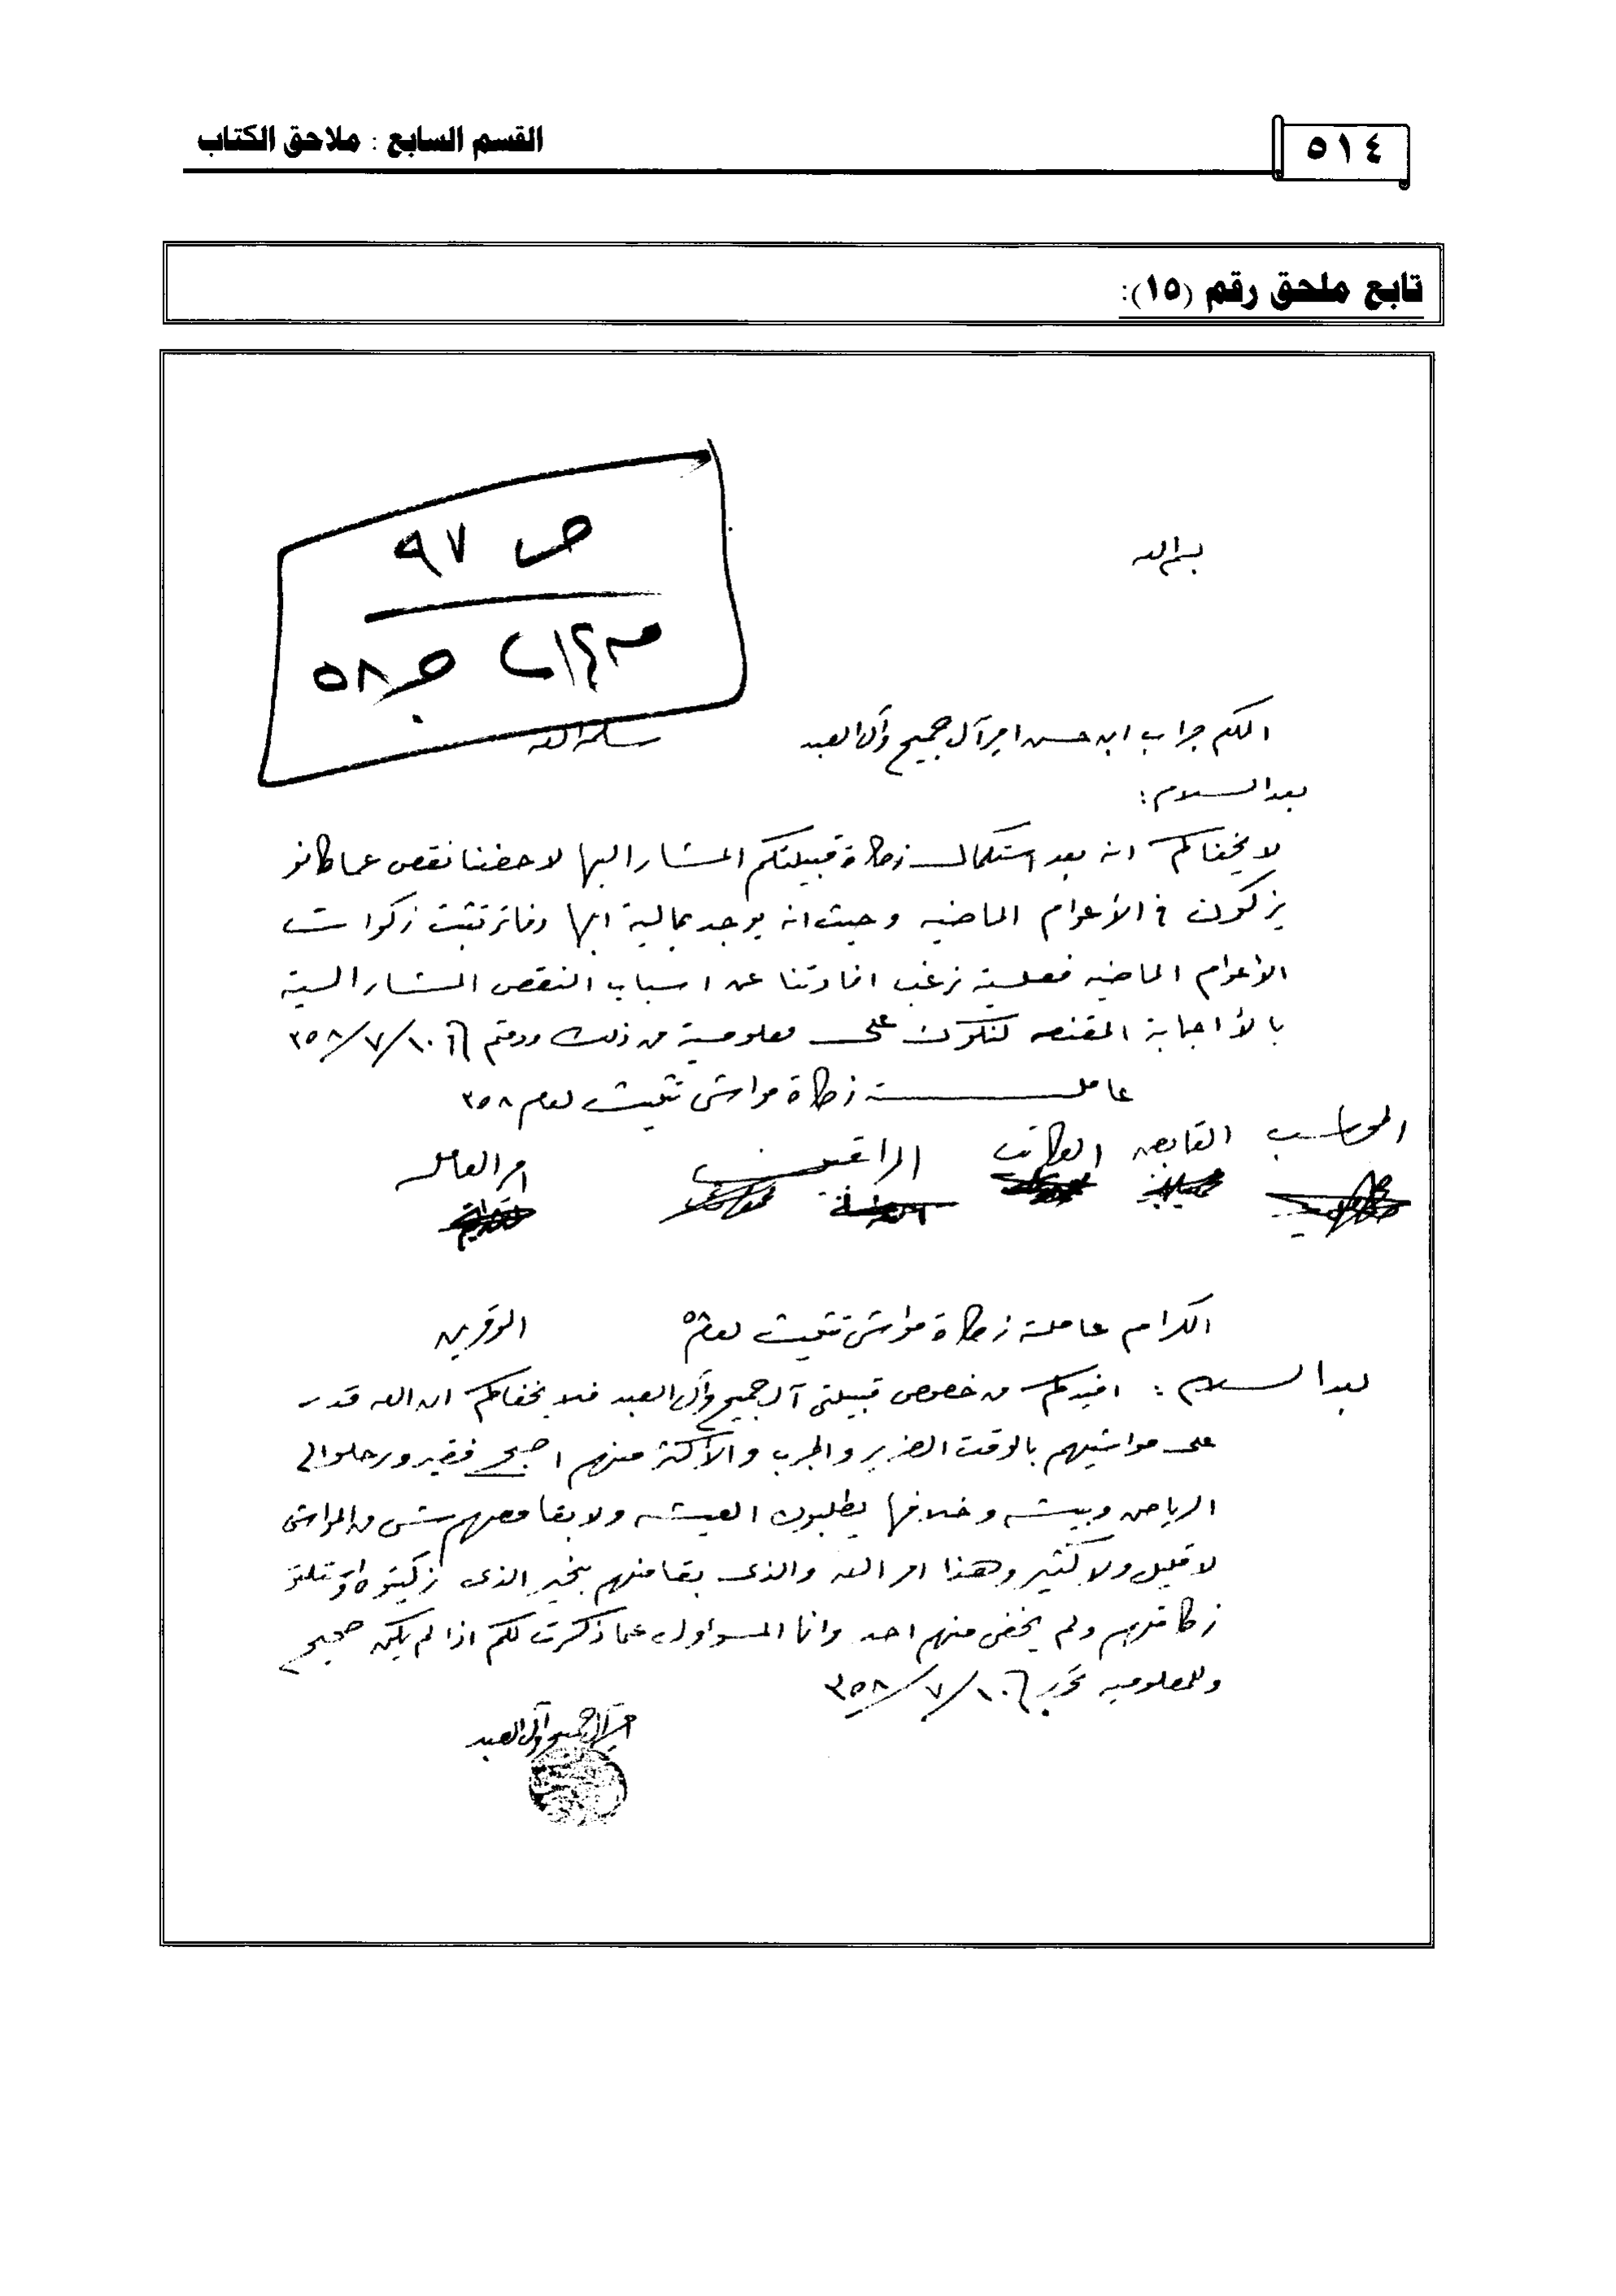 ٥١٤
القسم السابع : ملاحق الكتاب
تابع ملحق رقم (١٥):
ص ٩٧
٥٨
بسم الله
المكرم جراب ابن حسن امير آل جميح وآل العبد سلمه الله
بعد السلام :
لا يخفاكم انه بعد استكمال زكاة قبيلتكم المشار اليها لاحضنا نقص عما كانو
يزكون في الأعوام الماضيه وحيث انه يوجد بمالية ابها دفاتر تثبت زكوات
الأعوام الماضيه فعليه نرغب افادتنا عن اسباب النقص المشار اليه
بالأجابة المقنعه لنكون على معلومية من ذلك ودمتم ٣٥٨/٧/١٠
عاملة زكاة مواشي تثليث لعام ٣٥٨
المحاسب القابض الكاتب المراقبين امير العامله
الكرام عاملة زكاة مواشي تثليث لعام ٥٨ الموقرين
بعد السلام : افيدكم من خصوص قبيلتي آل جميح وآل العبد فلا يخفاكم ان الله قدر
على مواشيهم بالوقت الضرير والجرب والأكثر منهم اصبح فقير ورحلو الى
الرياض وبيشه وخلافها يطلبون العيشه ولا بقا معهم شي من المواشي
لا قليل ولا كثير وهذا امر الله والذي بقا منهم بخير الذي زكيتوه
زكاتهم ولم يخفى منهم احد وانا المسؤول عما ذكرت لكم اذا لم يكن صحيح
وللمعلوميه تحرر ٣٥٨/٧/١٠
امير آل جميح وآل العبد